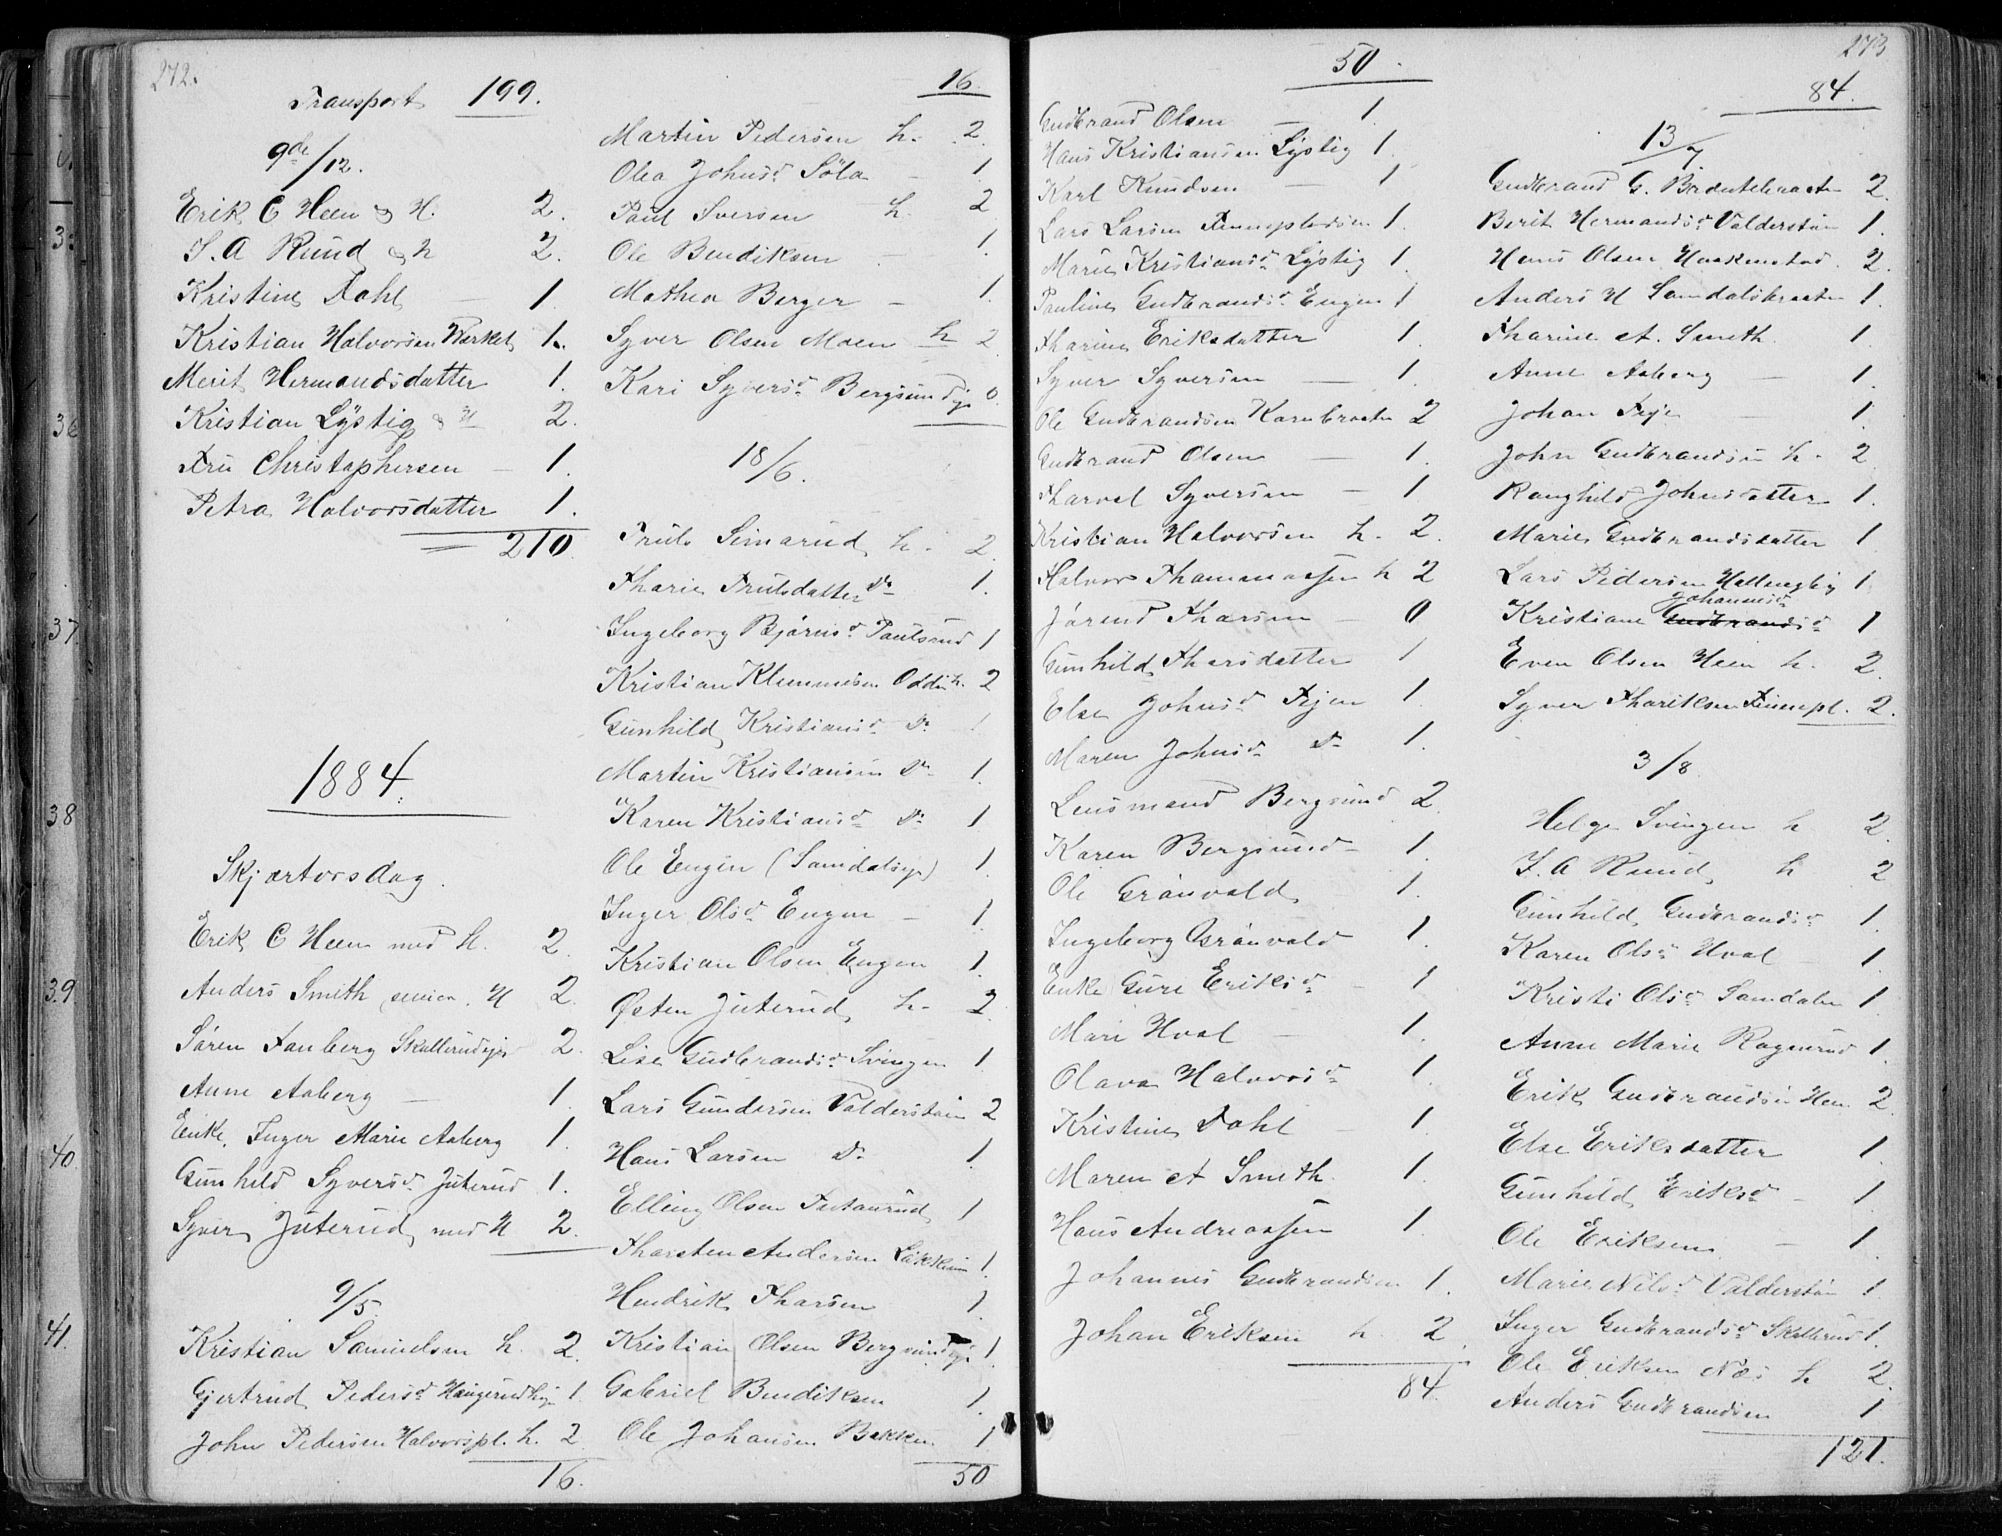 272.
Transport 199.
9de/12.
Erik C Heen & H. 2.
S. A Ruud & h 2.
Kristine Dahl — 1.
Kristian Halvorsen Værket 1.
Merit Hermandsdatter 1.
Kristian Lystig & H 2.
Fru Christophersen — 1.
Petra Halvorsdatter 1.
210.
1884.
Skjærtorsdag.
Erik C Heen med H. 2.
Anders Smith senior. H 2.
Søren Fonberg Skollerudeje 2.
Anne Aaberg — 1.
Enke. Inger Marie Aaberg 1.
Gunhild Syversd. Juterud 1.
Syver Juterud med H 2.
9/5.
Kristian Samuelsen h. 2.
Gjertrud Pedersd. 1.
John Pedersen Halvorspl. h. 2.
16.
16.
Martin Pedersen h. 2.
Olea Johnsd. Söla — 1.
Paul Iversen h. 2
Ole Bendiksen — 1.
Mathea Berger — 1.
Syver Olsen Moen h 2.
Kari Syversd. Bergsundeje 0.
18/6.
Truls Simarud h. 2.
Tharie Trulsdatter Do 1.
Ingeborg Bjørnsd. Paulsrud 1
Kristian Klemmetsen Oddn h. 2
Gunhild Kristiansd. Do 1
Martin Kristiansen Do 1.
Karen Kristiansd. Do 1
Ole Engen (Samdalseje) 1.
Inger Olsd. Engen — 1.
Kristian Olsen Engen 1.
Østen Juterud h. 2.
Lise Gudbrandsd. Svingen 1
Lars Gundersen Valdersteien 2
Hans Larsen Do 1.
Elling Olsen 1
Tharsten Andersen 1.
Hendrik Tharsen 1.
Kristian Olsen Bergsundeje 1.
Gabriel Bendiksen 1.
Ole Johansen Bakken 1
50
273
50.
Gudbrand Olsen — 1.
Hans Kristiansen Lystig 1.
Karl Knudsen — 1
Lars Larsen 1.
Marie Kristiansd. Lystig 1.
Pauline Gudbrandsd. Engen 1
Tharine Eriksdatter 1.
Syver Syversen — 1.
Ole Gudbrandsen Kornbraaten 2
Gudbrand Olsen — 1.
Tharval Syversen — 1
Kristian Halvorsen h. 2.
Halvor Thommassen h 2
Jørend Tharsen — 0
Gunhild Tharsdatter 1
Else Johnsd. Fejen 1.
Maren Johnsd. Do 1.
Lensmand Bergsund 2.
Karen Bergsund 1.
Ole Grönvold 1.
Ingeborg Grönvold 1.
Enke Guri Eriksd. — 1
Mari Hval — 1.
Olava Halvorsd. 1.
Kristine Dahl — 1.
Maren A Smith. 1.
Hans Andreassen 1.
Johannes Gudbrandsen 1.
Johan Eriksen h. 2.
84.
84.
13/7
Gudbrand G. Brøntebraaten 2.
Berit Hermandsd. Valderstøen 1.
Hans Olsen Haakenstad. 2.
Anders H Samdalsbraaten 1.
Tharine A. Smith. 1
Anne Aaberg — 1.
Johan Feje — 1.
John Gudbrandsen h. 2.
Ranghild Johnsdatter 1.
Marie Gudbrandsdatter 1.
Lars Pedersen Hallingby 1
Johannesd.
Kristiane Gudbrandsd. 1
Even Olsen Heen h. 2.
Syver Thoriksen 2.
3/8.
Helge Svingen h 2.
S. A Ruud h 2
Gunhild Gudbrandsd. 1.
Karen Olsd. Hval — 1.
Kristi Olsd. Samdalen 1
Anne Marie Ragnerud 1.
Erik Gudbrandsen Heen 2.
Else Eriksdatter 1.
Gunhild Eriksd. — 1
Ole Eriksen. — 1.
Marie Nilsd. Valderstøen 1.
Inger Gudbrandsd. Skollerud 1.
Ole Eriksen Næs h 2.
Anders Gudbrandsen 1
121.
35
36
37
38
39.
40
41.